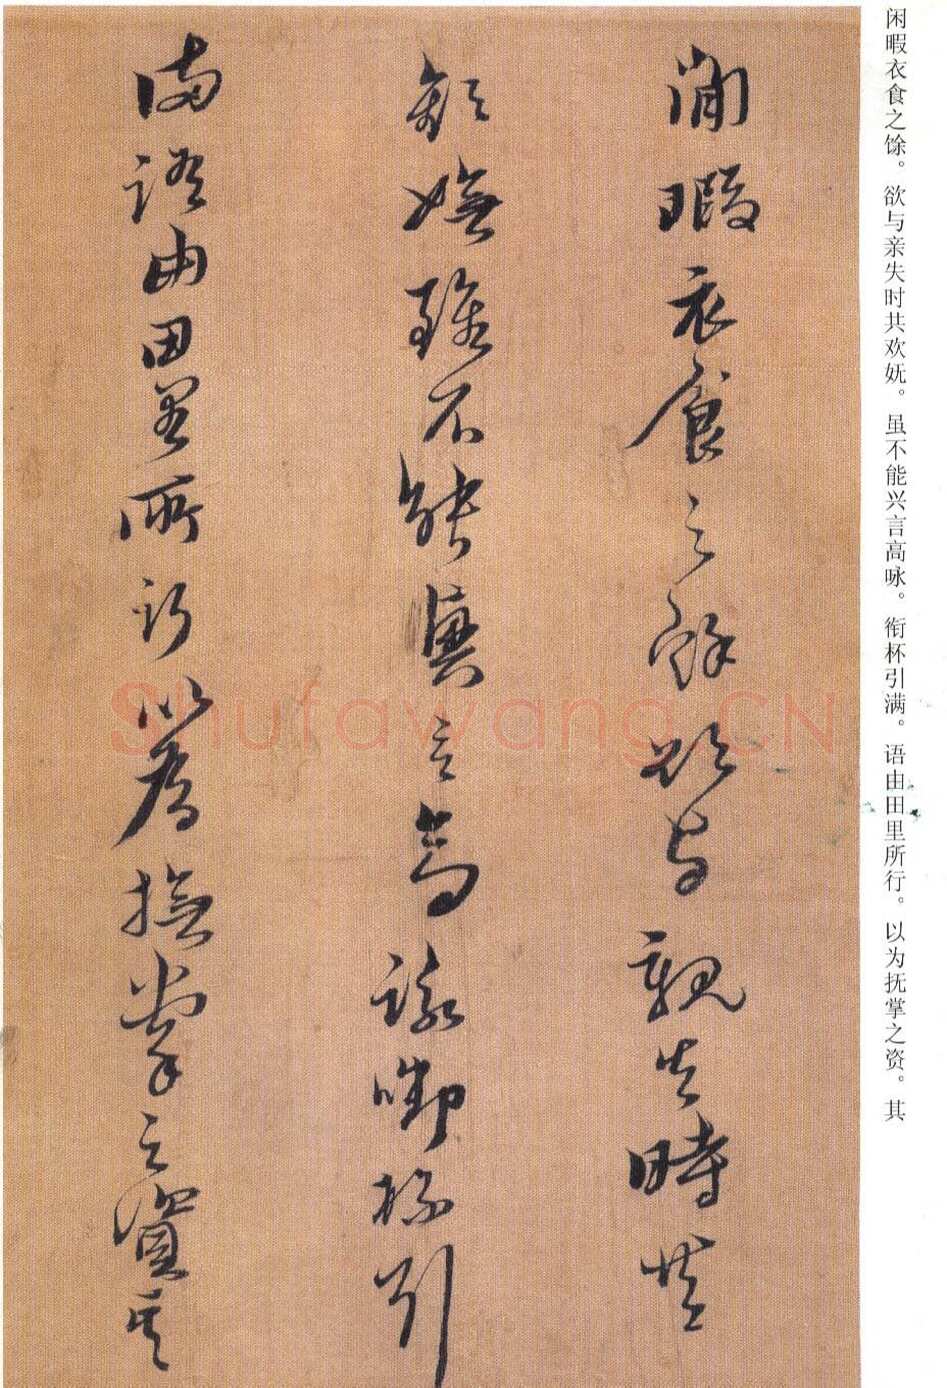 闲暇衣食之馀。欲与亲失时共欢妩。虽不能兴言高咏。衔杯引满。语由田里所行。以为抚掌之资。其
閒暇衣食之餘欲与親失時共
歡嫵雖不能興言高詠啣杯引
滿語由田里所行以為撫掌之資其
Shufawang.CN